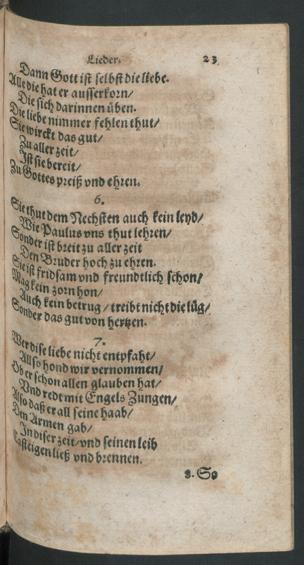 Lieder. 23
Dann Gott ist selbst die liebe.
Alle die hat er ausserkorn/
Die sich darinnen üben.
Die liebe nimmer fehlen thut/
Sie wirckt das gut/
Zu aller zeit/
Ist sie bereit/
Zu Gottes preiß vnd ehren.
6.
Sie thut dem Nechsten auch kein leyd/
Wie Paulus vns thut lehren/
Sonder ist breit zu aller zeit
Den Bruder hoch zu ehren.
Sie ist fridsam vnd freundtlich schon/
Mag kein zorn hon/
Auch kein betrug/ treibt nicht die lüg/
Sonder das gut von hertzen.
7.
Wer dise liebe nicht entpfaht/
Also hond wir vernommen/
Ob er schon allen glauben hat/
Vnd redt mit Engels Zungen/
Also daß er all seine haab/
Den Armen gab/
In diser zeit/ vnd seinen leib
Casteigen ließ vnd brennen.
8. So